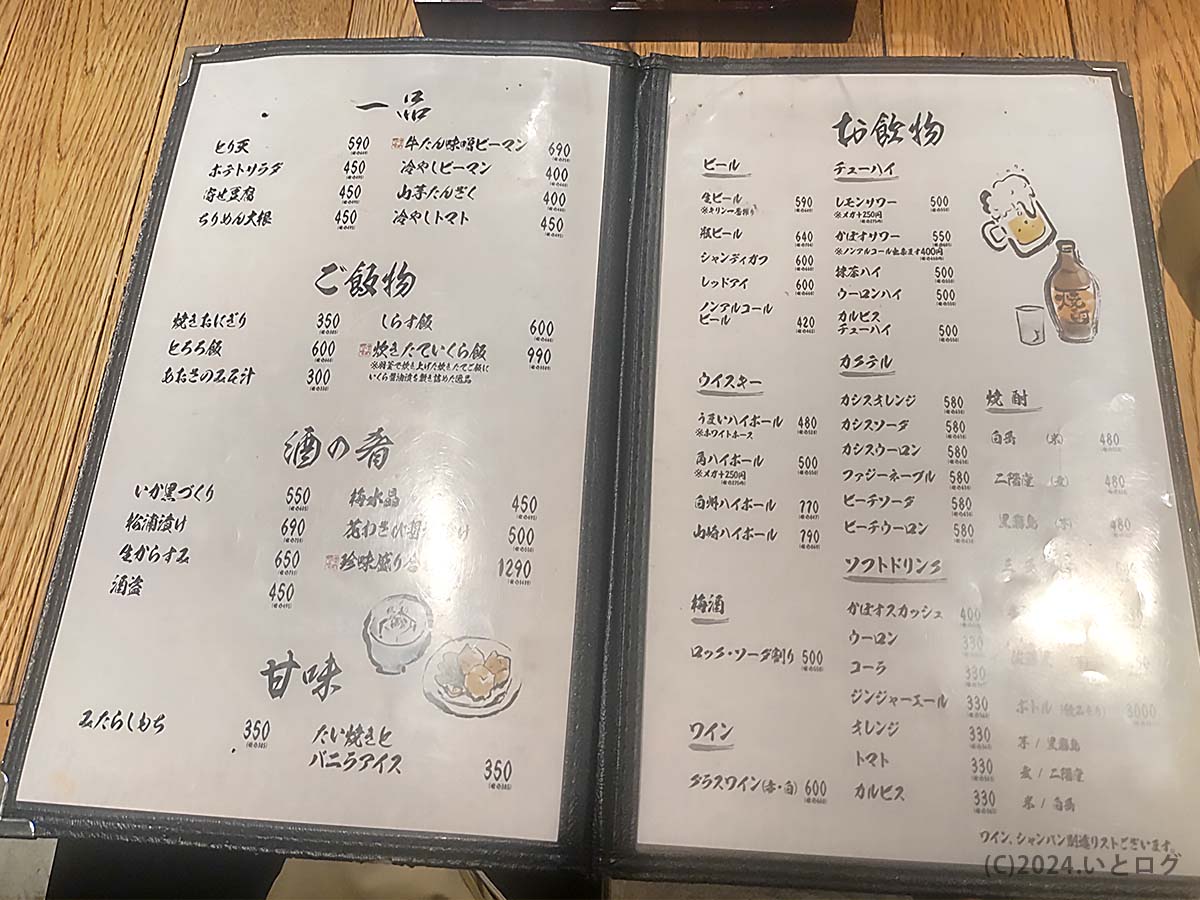 一品
とり天 590
ポテトサラダ 450
寄せ豆腐 450
ちりめん大根 450
牛たん味噌ピーマン 690
冷やしピーマン 400
山芋たんざく 400
冷やしトマト 450
ご飯物
焼きおにぎり 350
とろろ飯 600
あおさのみそ汁 300
しらす飯 600
炊きたていくら飯 990
※羽釜で炊き上げた炊きたてご飯に
いくら醤油漬を敷き詰めた逸品
酒の肴
いか黒づくり 550
松浦漬け 690
生からすみ 650
酒盗 450
梅水晶 450
花わさび 漬け 500
珍味盛り 1290
甘味
みたらしもち 350
たい焼きと
バニラアイス 350
お飲物
ビール
生ビール 590
※キリン一番搾り
瓶ビール 640
シャンディガフ 600
レッドアイ 600
ノンアルコール
ビール 420
ウイスキー
うまいハイボール 480
※ホワイトホース
角ハイボール 500
※メガ+250円
白州ハイボール 770
山崎ハイボール 790
梅酒
ロック・ソーダ割り 500
ワイン
グラスワイン(赤・白) 600
チューハイ
レモンサワー 500
※メガ+250円
かぼすサワー 550
※ノンアルコール出来ます400円
抹茶ハイ 500
ウーロンハイ 500
カルピス
チューハイ 500
カクテル
カシスオレンジ 580
カシスソーダ 580
カシスウーロン 580
ファジーネーブル 580
ピーチソーダ 580
ピーチウーロン 580
ソフトドリンク
かぼすスカッシュ 400
ウーロン 330
コーラ 330
ジンジャーエール 330
オレンジ 330
トマト 330
カルピス 330
焼酎
白岳 (米) 480
二階堂 (麦) 480
黒霧島 (芋) 480
ボトル 3000
芋 / 黒霧島
麦 / 二階堂
米 / 白岳
ワイン、シャンパン別途リストございます。
(C)2024.いとログ